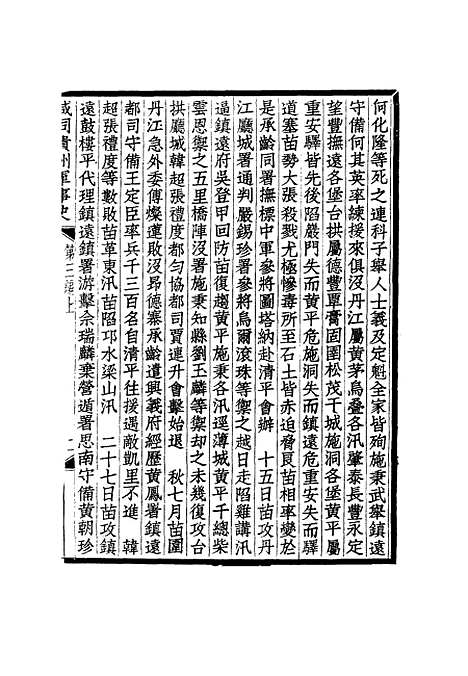 何化隆等死之連科子舉人士義及定魁全家皆殉施秉武舉鎮遠
守備何其英率練援來俱沒丹江屬黃茅烏叠各汛肇泰長豐永定
望豐撫遠各堡台拱屬德豐覃膏固圉松茂干城施洞各堡黃平屬
重安驛皆先後陷巖門失而黃平危施洞失而鎮遠危重安失而驛
道塞苗勢大張殺戮尤極慘毒所至石土皆赤迫脅良苗相率變於
是承齡同署撫標中軍參將圖塔納赴清平會辦　十五日苗攻丹
江廳城署通判嚴錫珍署參將烏爾滾珠等禦之越日走陷雞講汛
逼鎮遠府吳登甲回防苗復趨黃平施秉各汛逕薄城黃平千總柴
雲恩禦之五里橋陣沒署施秉知縣劉玉麟等禦却之未幾復攻台
拱廳城韓超張禮度都勻協都司賈連升會擊始退　秋七月苗圍
丹江急外委傅燦蓮敗沒昂德寨承齡遣興義府經歷黃鳳署鎮遠
都司守備王定臣率兵千三百名自清平往援遇敵凱里不進　韓
超張禮度等數敗苗革東汛苗陷邛水梁山汛　二十七日苗攻鎮
遠鼓樓平代理鎮遠鎮署游擊佘瑞麟棄營遁署思南守備黃朝珍
咸同貴州軍事史　第二編上　二